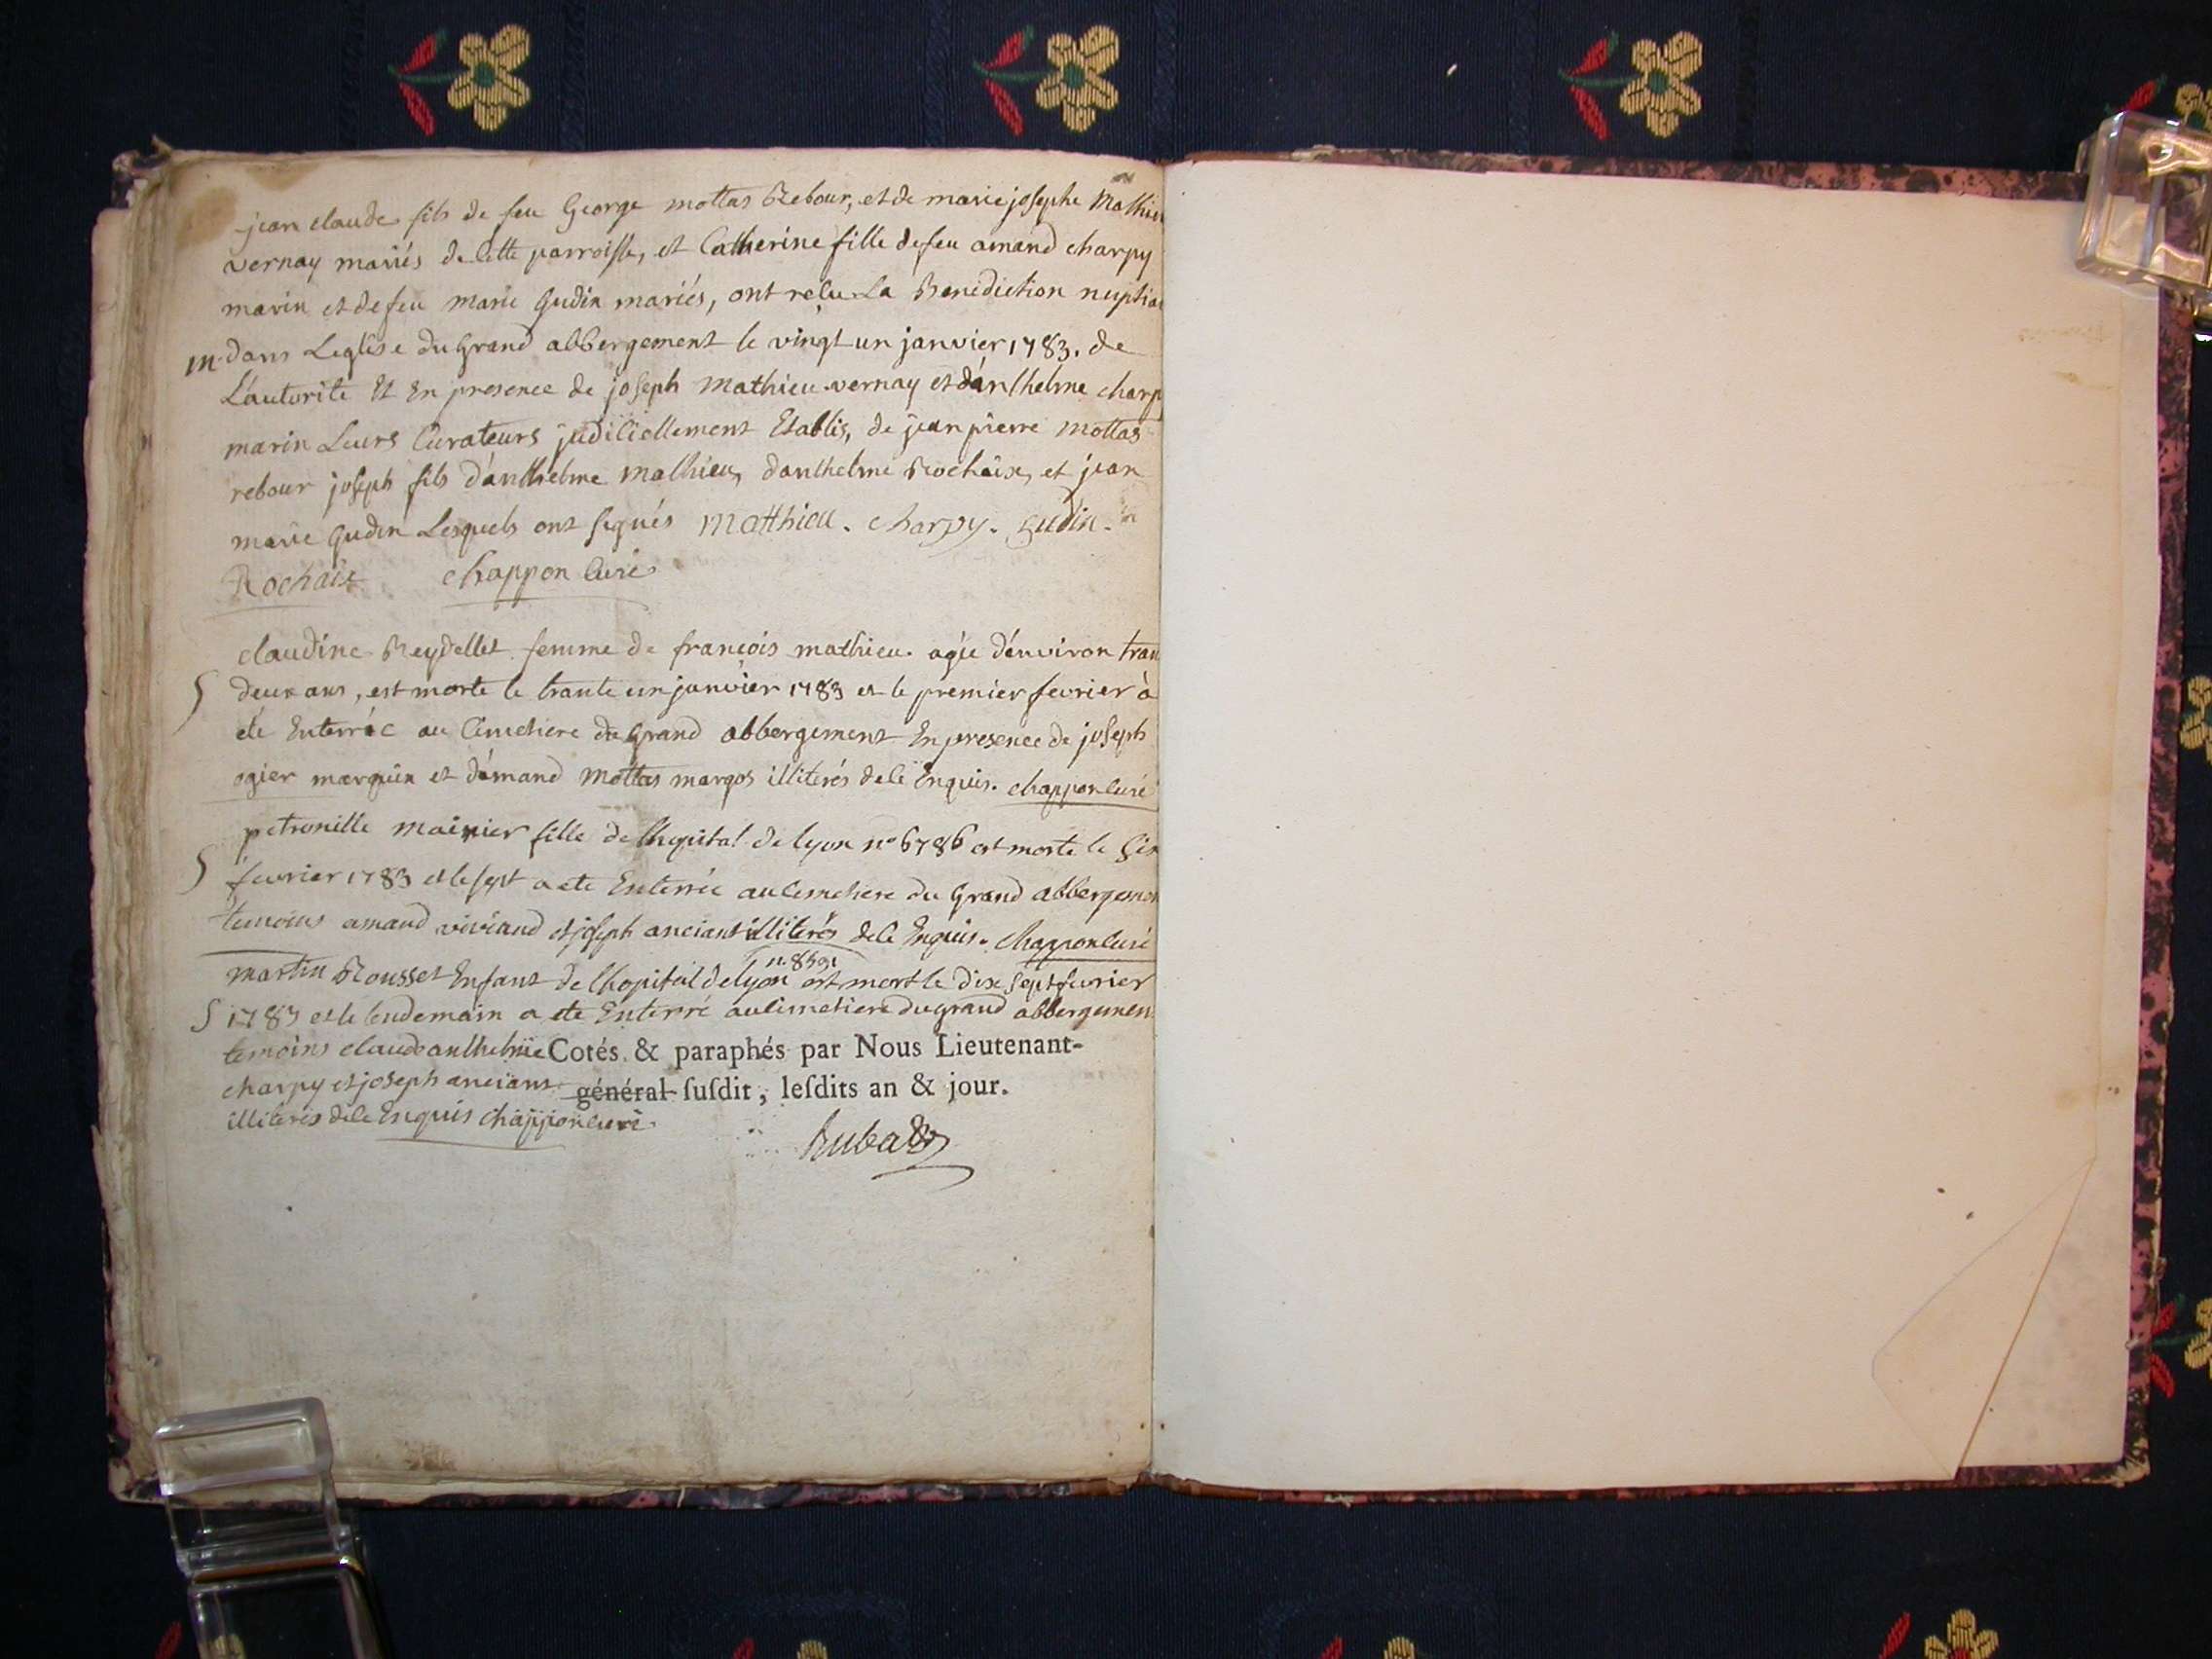 jean claude fils de feu George mottas Rebour, et de marie josephe Mathieu
vernay mariés de Cette parroisse, et Catherine fille de feu amand charpy
marin et de feu marie Gudin mariés, ont reçu La Benediction nuptia
m dans Leglise du Grand abbergement le vingt un janvier 1783. de
L'autorite Et En presence de joseph Mathieu vernay et d'anthelme charp
marin Leurs Curateurs judiciellement Etablis, de jean pierre Mottas
rebour joseph fils d'anthelme Mathieu, danthelme Rochaix, et jean
marie Gudin Lesquels ont signés Matthieu. charpy. Gudin.
Rochaix chappon Curé
claudine Reydellet femme de françois mathieu. agée d'environ tran
S deux ans, est morte le trante un janvier 1783 et le premier fevrier à
été Enterréé au Cimetiere du Grand abbergement En presence de joseph
ogier marquin et d'amand Mottas margos illiterés de ce Enquis. chappon Curé
petronille mainier fille de lhopital de lyon n° 6786 est morte le six
S fevrier 1783 et le sept a ete Enterrée au Cimetiere du Grand abbergemen
temoins amand viviand et joseph anciant illiterés de ce Enquis. Chappon Curé
n. 8591
martin Rousset Enfant de lhopital de lyon est mort le dix sept fevrier
S 1783 et le lendemain a ete Enterré au Cimetiere du grand abbergemen
temoins claude anthelme Cotés & paraphés par Nous Lieutenant-
charpy et joseph anciant général ſuſdit, leſdits an & jour.
illiterés de ce Enquis Chappon Curé